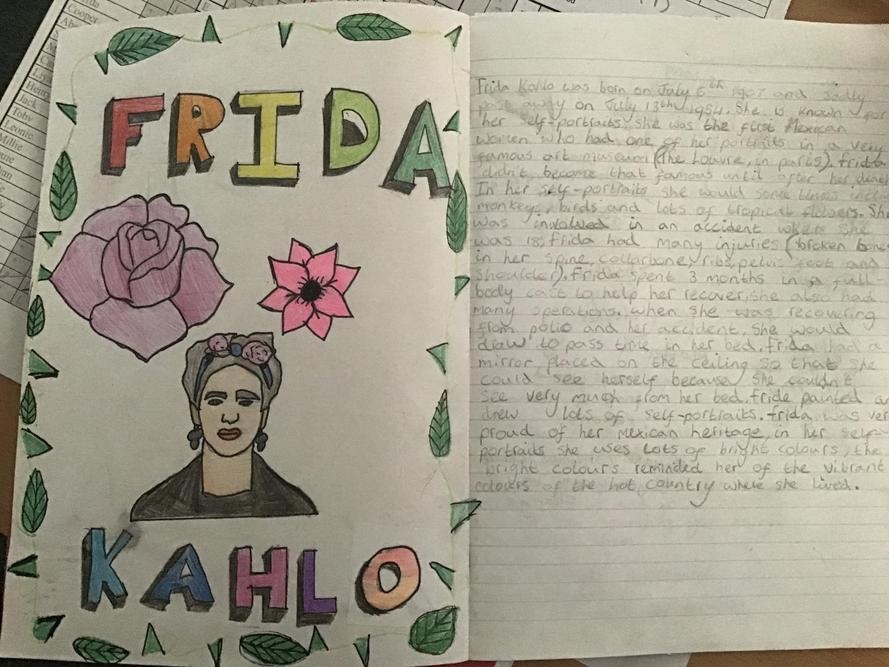 Cooper
Henry
Jack
Toby
Leonie
Millie
FRIDA
KAHLO
Frida Kahlo was born on July 6th 1907 and sadly
past away on July 13th 1954. She is known for
her self-portraits, she was the first Mexican
women who had one of her portraits in a very
famous art museum (The Louvre, in paris). frida
didn't become that famous until after her death
In her self-portraits she would some times incl
monkeys, birds and lots of tropical flowers. She
was involved in an accident when she
was 18, frida had many injuries (broken bones
in her spine, collarbone, ribs, pelvis, foot and
shoulder). Frida spent 3 months in a full-
body cast to help her recover, she also had
many operations. When she was recovering
from polio and her accident, She would
draw to pass time in her bed. frida had a
mirror placed on the ceiling so that she
could see herself because she couldn't
see very much from her bed. fride painted an
drew lots of self-portraits. frida was very
proud of her mexican heritage, in her self-
portraits she uses lots of bright colours, the
bright colours reminded her of the vibrant
colours of the hot country where she lived.